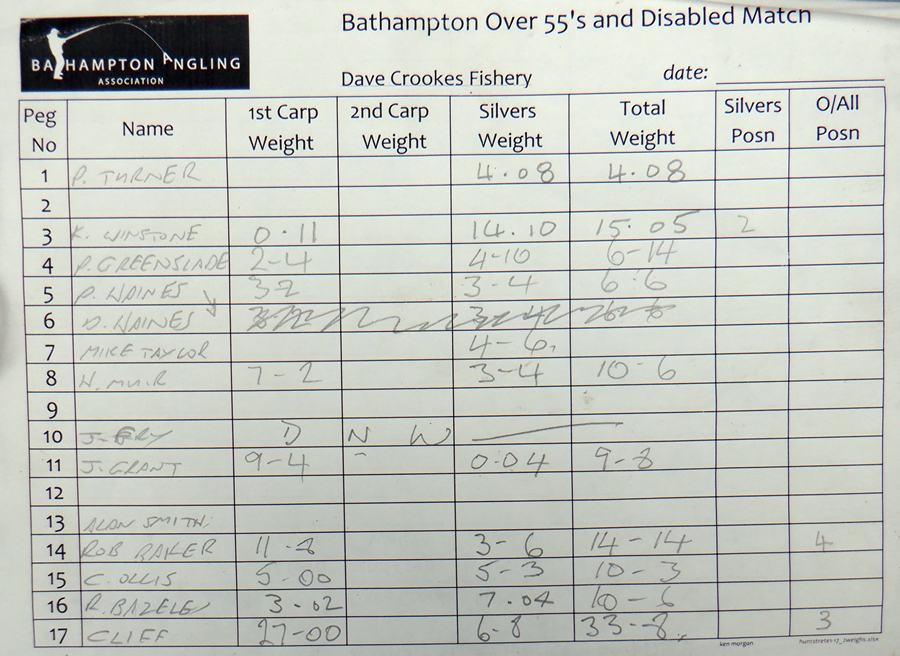 BATHAMPTON ANGLING
ASSOCIATION
Bathampton Over 55's and Disabled Match
Dave Crookes Fishery date:
Peg No Name 1st Carp Weight 2nd Carp Weight Silvers Weight Total Weight Silvers Posn O/All Posn
1 P. TURNER 4.08 4.08
2
3 K. WINSTONE 0.11 14.10 15.05 2
4 P. GREENSLADE 2-4 4-10 6-14
5 P. HAINES 3-2 3-4 6.6
6 D. HAINES
7 MIKE TAYLOR 4-6.
8 N. MUIR 7-2 3-4 10-6
9
10 J. D N W
11 J. GRANT 9-4 0.04 9-8
12
13 ALAN SMITH.
14 ROB BAKER 11-8 3-6 14-14 4
15 C. OLLIS 5-00 5-3 10-3
16 R. BAZELEY 3.02 7.04 10-6
17 CLIFF 27-00 6-8 33-8. 3
ken morgan